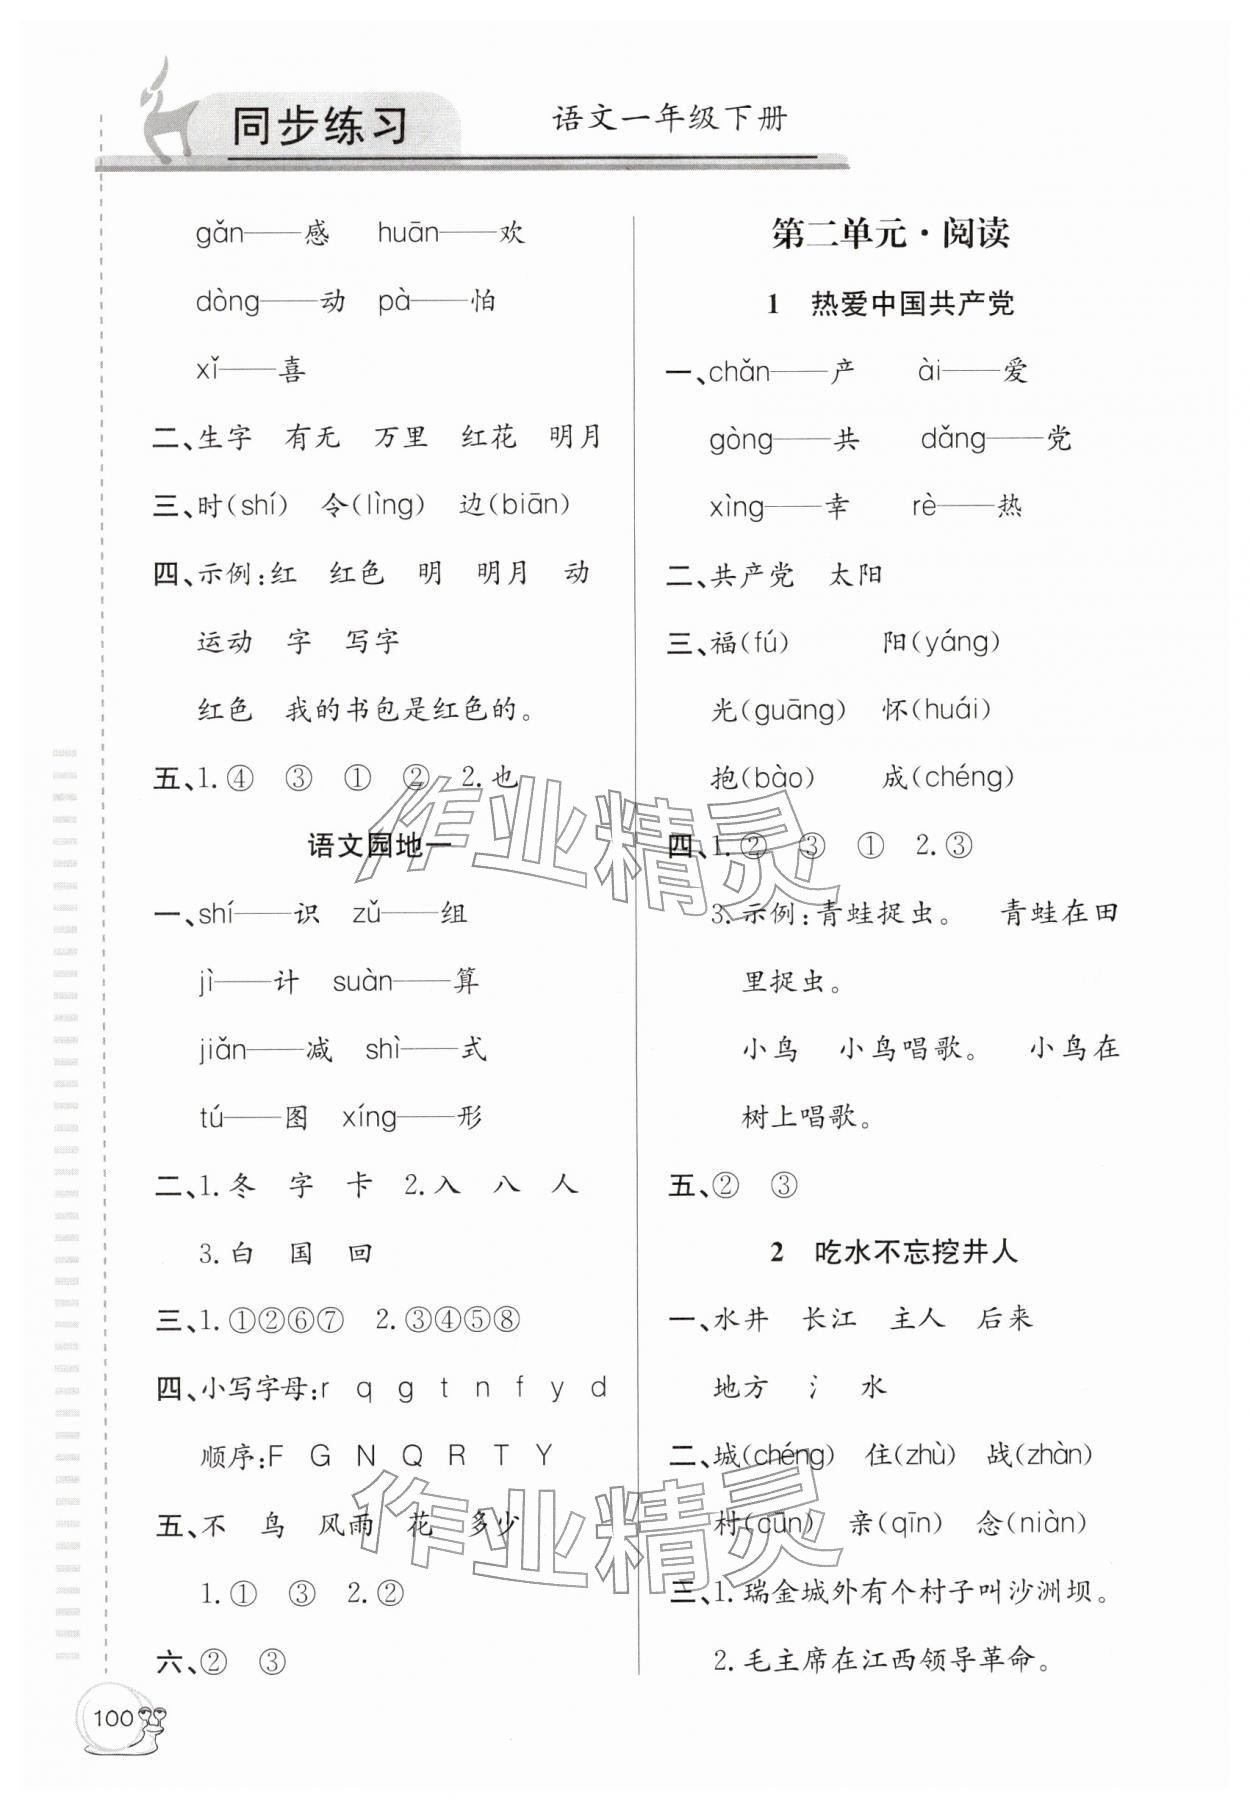 同步练习
语文一年级下册
gǎn——感 huān——欢
dòng——动 pà——怕
xǐ——喜
二、生字 有无 万里 红花 明月
三、时(shí) 令(lìng) 边(biān)
四、示例:红 红色 明 明月 动
运动 字 写字
红色 我的书包是红色的。
五、1.④ ③ ① ② 2.也
语文园地一
一、shí——识 zǔ——组
jì——计 suàn——算
jiǎn——减 shì——式
tú——图 xíng——形
二、1.冬 字 卡 2.入 八 人
3.白 国 回
三、1.①②⑥⑦ 2.③④⑤⑧
四、小写字母:r q g t n f y d
顺序:F G N Q R T Y
五、不 鸟 风雨 花 多少
1.① ③ 2.②
六、② ③
第二单元·阅读
1 热爱中国共产党
一、chǎn——产 ài——爱
gòng——共 dǎng——党
xìng——幸 rè——热
二、共产党 太阳
三、福(fú) 阳(yáng)
光(guāng) 怀(huái)
抱(bào) 成(chéng)
四、1.② ③ ① 2.③
3.示例:青蛙捉虫。 青蛙在田
里捉虫。
小鸟 小鸟唱歌。 小鸟在
树上唱歌。
五、② ③
2 吃水不忘挖井人
一、水井 长江 主人 后来
地方 氵 水
二、城(chéng) 住(zhù) 战(zhàn)
村(cūn) 亲(qīn) 念(niàn)
三、1.瑞金城外有个村子叫沙洲坝。
2.毛主席在江西领导革命。
100
作业精灵
作业精灵